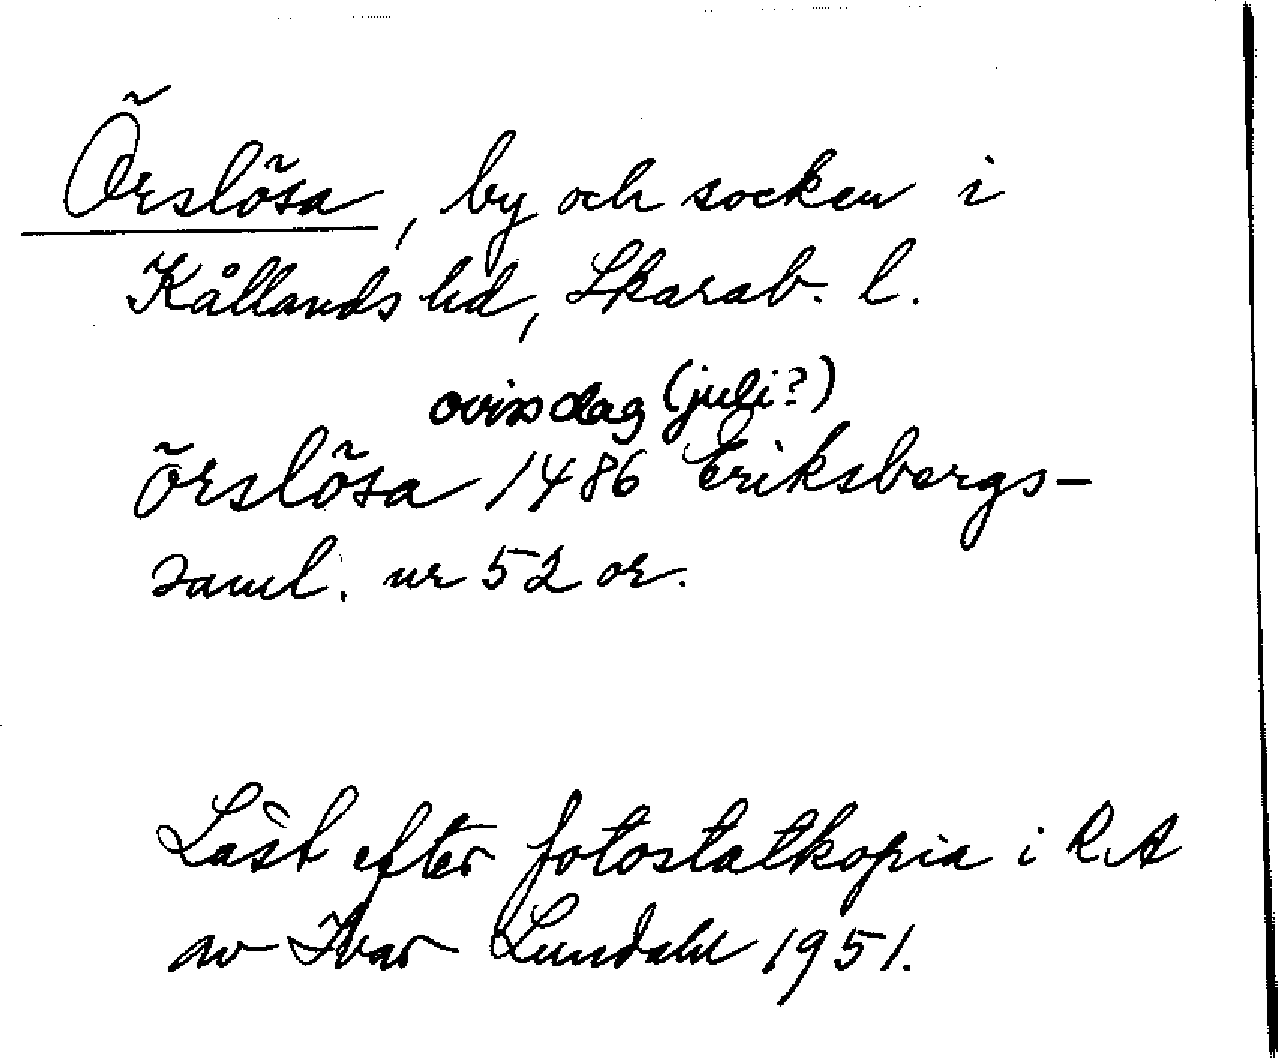 Örslösa, by och socken i
Kållands hd, Skarab. l.
oviss dag (juli?)
örslösa 1486 Eriksbergs-
saml. nr 52 or.
Läst efter fotostatkopia i RA
av Ivar Lundahl 1951.